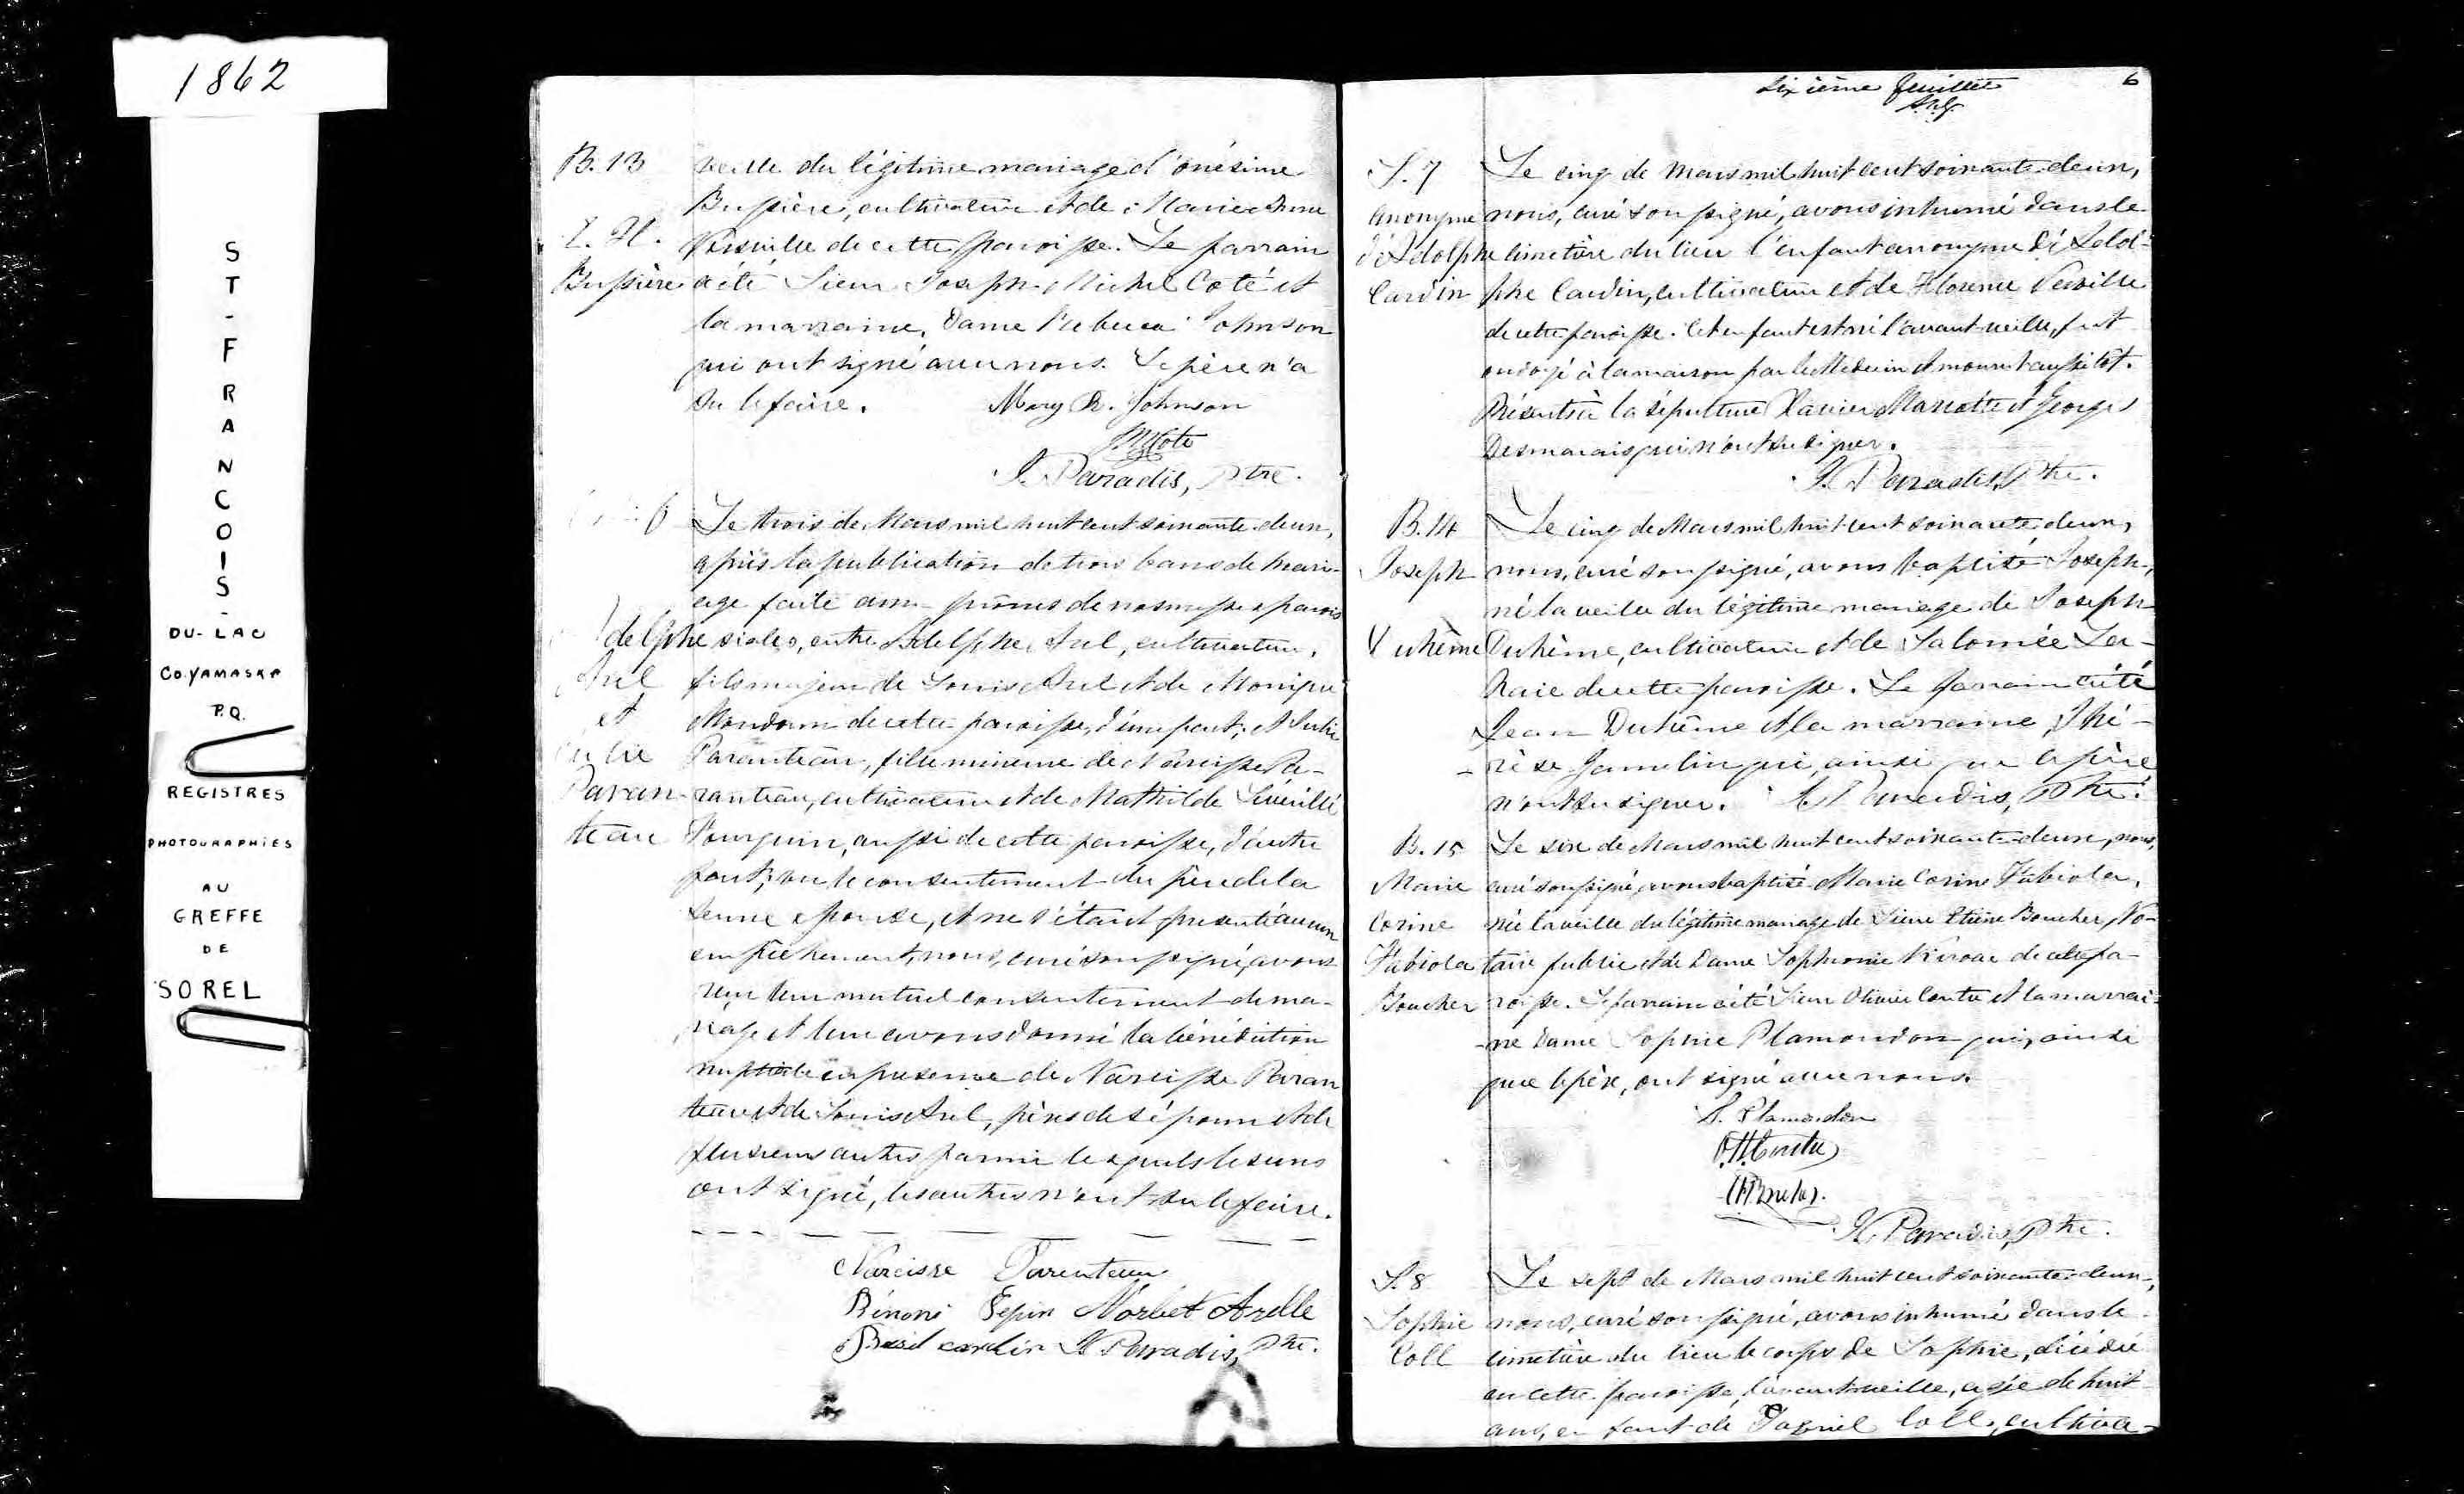 1862
ST-FRANCOIS-
DU-LAC
CO. YAMASKA
P.Q.
REGISTRES
PHOTOGRAPHIES
AU
GREFFE
DE
SOREL
B. 13
Bussière
veille du légitime mariage d'onésime
Bussière, cultivateur et de Marie Anne
de cette paroisse. Le parrain
a été Sieur Joseph Michel Coté et
la marraine, Dame Rebecca Johnson
qui ont signé avec nous. Le père n'a
su le faire. Mary R. Johnson
J.M Coté
Paradis, Ptre.
6
delphe
Aril
et
Julie
Paran
teau
Le trois de Mars mil huit cent soixante-deux,
après la publication de trois bans de mari-
age faite aux prônes de nos messes parois
siales, entre Adelphe, cultivateur,
fils majeur de Louis et de Monique
de cette paroisse, d'une part; et Julie
Paranteau, fille mineure de Narcisse Pa-
ranteau, cultivateur et de Mathilde
aussi de cette paroisse, d'autre
part; vu le consentement du père de la
jeune épouse, et ne s'étant présenté aucun
empêchement, nous, curé soussigné, avons
reçu leur mutuel consentement de ma-
riage et leur avons donné la bénédiction
nuptiale en présence de Narcisse Paran
teau et de Louis, pères des époux et de
plusieurs autres parmi lesquels les uns
ont signé, les autres n'ont su le faire.
Narcisse Parenteau
Bénoni Pepin Norbet Arelle
Basil cardin Paradis, Ptre.
Sixième feuillet 6
S. 7
anonyme
d'Adolphe
Cardin
Le cinq de Mars mil huit cent soixante-deux,
nous, curé soussigné, avons inhumé dans le
cimetière du lieu l'enfant anonyme
phe Cardin, cultivateur et de Florence
de cette paroisse. Cet enfant est né l'avant-veille, fut
ondoyé à la maison par le Médecin et mourut aussitôt.
Présents à la sépulture Xavier et Georges
Desmarais qui n'ont su signer.
Paradis, Ptre.
B. 14
Joseph
Duhême
Le cinq de Mars mil huit cent soixante-deux,
nous, curé soussigné, avons baptisé Joseph,
né la veille du légitime mariage de Joseph
Duhême, cultivateur et de Salomée La-
de cette paroisse. Le parrain a été
Jean Duhême et la marraine, Thé-
rèse Jamelin qui, ainsi que le père
n'ont su signer. Paradis, Ptre.
B. 15
Marie
Corine
Fabiola
Boucher
Le six de Mars mil huit cent soixante-deux, nous,
curé soussigné, avons baptisé Marie Corine Fabiola,
née la veille du légitime mariage de Sieur Boucher, No-
taire public et de Dame Sophronie Kiroac de cette pa-
roisse. Le parrain a été Sieur Olivier et la marrai-
ne Dame Sophie Plamondon qui, ainsi
que le père, ont signé avec nous.
S. Plamondon
Paradis, Ptre.
S. 8
Sophie
Coll
Le sept de Mars mil huit cent soixante-deux,
nous, curé soussigné, avons inhumé dans le
cimetière du lieu le corps de Sophie, décédée
en cette paroisse, l'avant-veille, agée de huit
ans, enfant de Coll, cultiva-